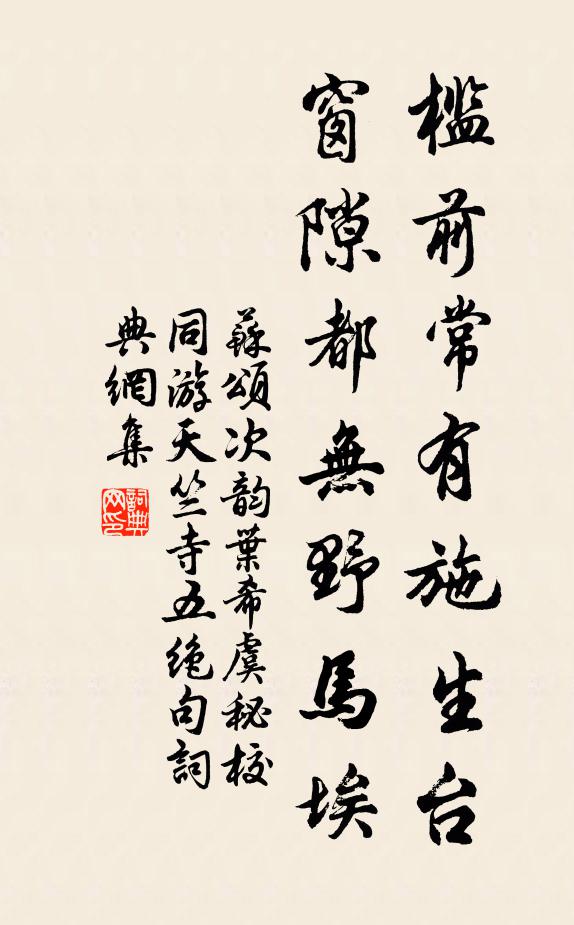 檻前常有施生台
窗隙都無野馬埃
蘇頌次韵葉希虞秘校
同游天竺寺五绝句詞
典網集
詞典网印